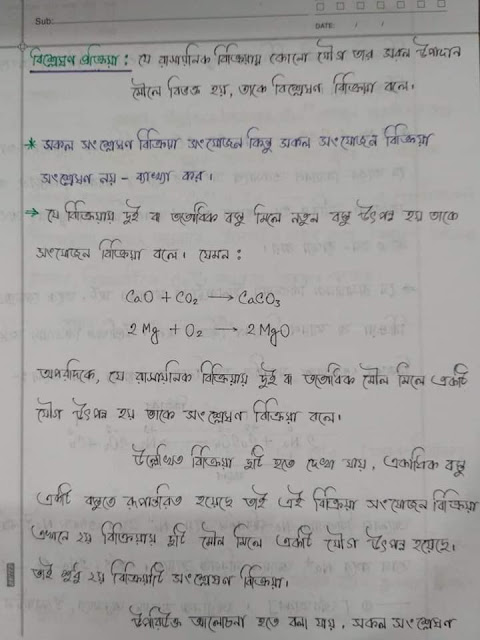 Sub:
DATE: / /
বিশ্লেষণ বিক্রিয়া : যে রাসায়নিক বিক্রিয়ায় কোনো যৌগ তার সকল উপাদান
মৌলে বিভক্ত হয়, তাকে বিশ্লেষণ বিক্রিয়া বলে।
* সকল সংশ্লেষণ বিক্রিয়া সংযোজন কিন্তু সকল সংযোজন বিক্রিয়া
সংশ্লেষণ নয় - ব্যাখ্যা কর।
→ যে বিক্রিয়ায় দুই বা ততোধিক বস্তু মিলে নতুন বস্তু উৎপন্ন হয় তাকে
সংযোজন বিক্রিয়া বলে। যেমন :
CaO + CO₂ → CaCO₃
2Mg + O₂ → 2MgO
অপরদিকে, যে রাসায়নিক বিক্রিয়ায় দুই বা ততোধিক মৌল মিলে একটি
যৌগ উৎপন্ন হয় তাকে সংশ্লেষণ বিক্রিয়া বলে।
উল্লেখিত বিক্রিয়া দুটি হতে দেখা যায়, একাধিক বস্তু
একটি বস্তুতে রূপান্তরিত হয়েছে তাই এই বিক্রিয়া সংযোজন বিক্রিয়া
এখানে ২য় বিক্রিয়ায় দুটি মৌল মিলে একটি যৌগ উৎপন্ন হয়েছে।
তাই শুধু ২য় বিক্রিয়াটি সংশ্লেষণ বিক্রিয়া।
উপরিউক্ত আলোচনা হতে বলা যায়, সকল সংশ্লেষণ